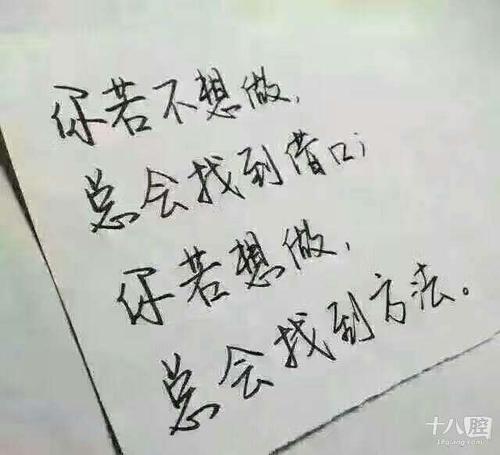 你若不想做，
总会找到借口；
你若想做，
总会找到方法。
十八腔
18qiang.com